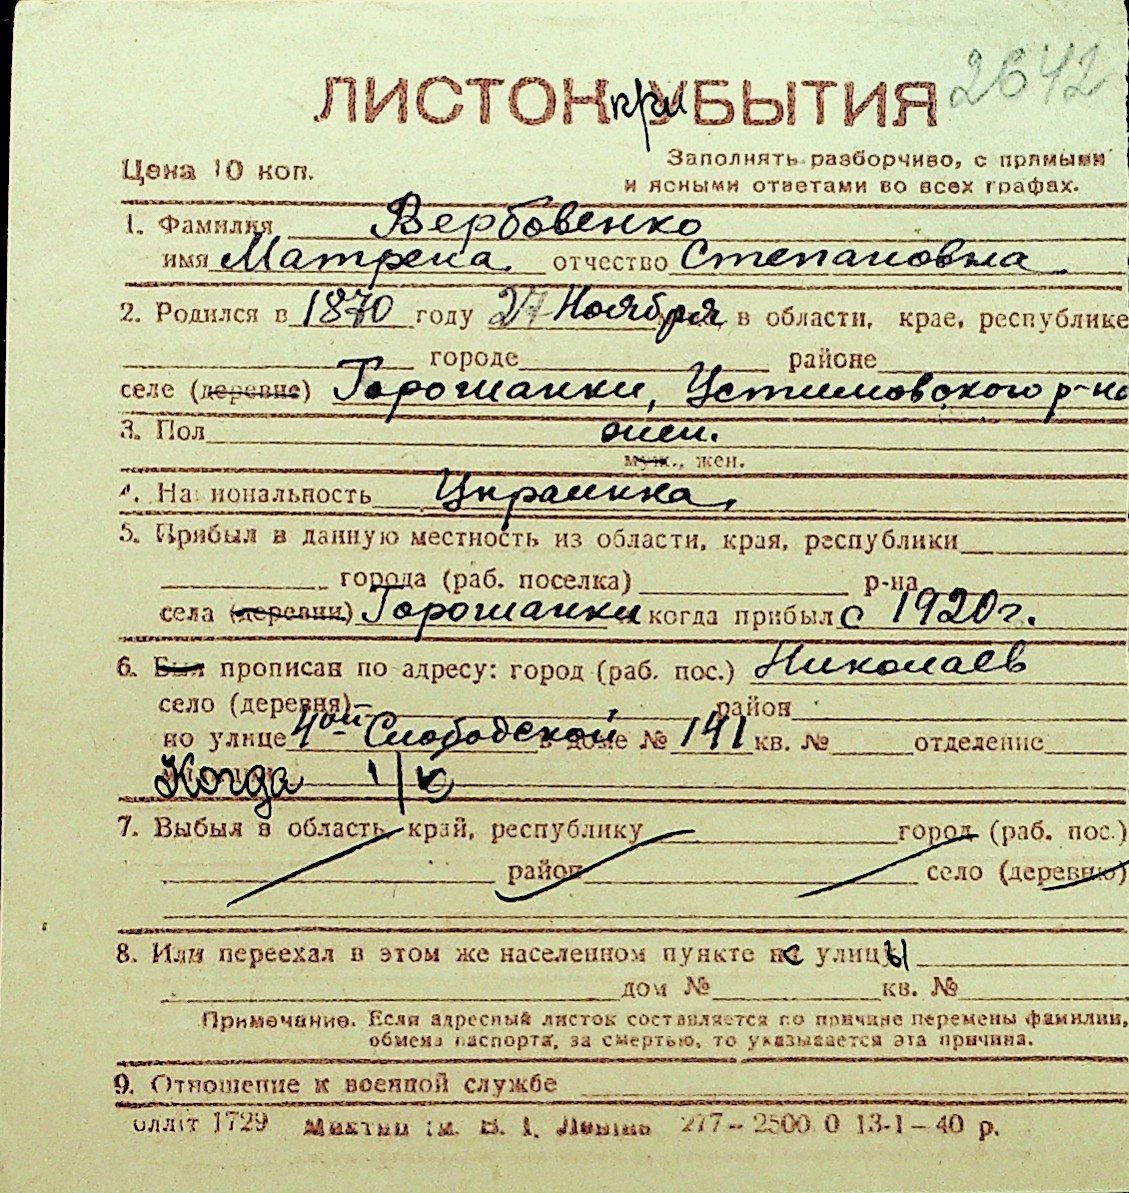 2642
ЛИСТОК при УБЫТИЯ
Цена 10 коп.
Заполнять разборчиво, с прямыми
и ясными ответами во всех графах.
1. Фамилия Вербовенко
имя Матрена отчество Степановна
2. Родился в 1870 году 27 Ноября в области, крае, республике
городе районе
селе (деревне) Горошанки, Устимовского р-на
3. Пол жен.
муж., жен.
4. Национальность Украинка
5. Прибыл в данную местность из области, края, республики
города (раб. поселка) р-на
села (деревни) Горошанки когда прибыл с 1920 г.
6. Был прописан по адресу: город (раб. пос.) Николаев
село (деревня) район
по улице 4ой Слободской в доме № 141 кв. № отделение
Когда
7. Выбыл в область край, республику город (раб. пос.)
район село (деревню)
8. Или переехал в этом же населенном пункте с улицы
дом № кв. №
Примечание. Если адресный листок составляется по причине перемены фамилии,
обмена паспорта, за смертью, то указывается эта причина.
9. Отношение к военной службе
олліт 1729 277–2500 0 13-1–40 р.